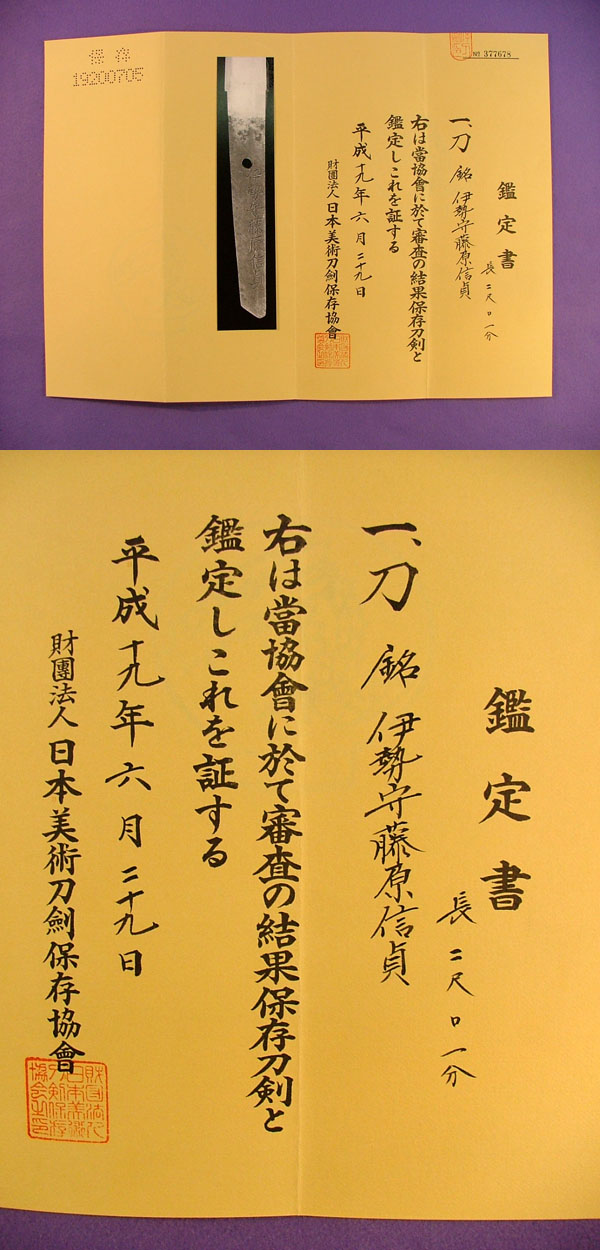 保存
19200705
No 377678
鑑定書
一、刀 銘 伊勢守藤原信貞
長 二尺口一分
右は當協會に於て審査の結果保存刀剣と
鑑定しこれを証する
平成十九年六月二十九日
財團法人日本美術刀劍保存協會
鑑定書
一、刀 銘 伊勢守藤原信貞
長 二尺口一分
右は當協會に於て審査の結果保存刀剣と
鑑定しこれを証する
平成十九年六月二十九日
財團法人日本美術刀劍保存協會